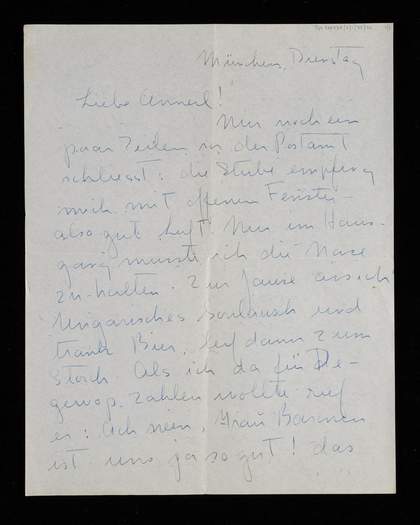 München, Dienstag
Liebe Annerl!
Nur noch ein
paar Zeilen in der Postamt
schliesst: die Stube empfing
mich mit offenem Fenster -
also gut Luft! Nur im Haus-
gang musste ich die Nase
zu-halten. Zur Jause ass ich
Ungarisches und
trank Bier, lief dann zum
Storch. Als ich da für De-
gewop. zahlen wollte rief
er: Ach nein, Frau
ist uns ja so gut! das